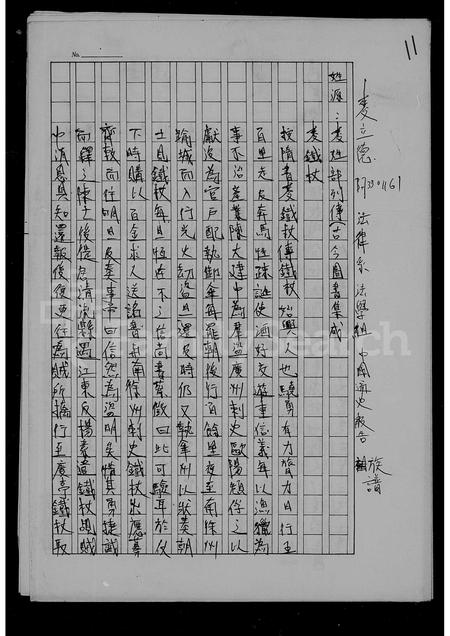 11
麥立德 法律系 法學組 中國通史報告 族譜
No.
姓源：麥姓部列傳 古今圖書集成
麥鐵杖
按隋書麥鐵杖傳鐵杖始興人也驍勇有力膂力日行五
百里走及奔馬性疎誕使酒好交遊重信義每以漁獵為
事不治產業陳大建中為羣盜廣州刺史歐陽頠俘之以
獻沒為官戶配執御傘每罷朝後行百餘里夜至南徐州
踰城而入行光火劫盜旦還及時仍又執傘州以狀奏朝
士見鐵杖每旦恆在不之信尚書蔡徵曰此可驗耳於仗
下時購以百金求人送詔書與南徐州刺史鐵杖出應募
齎敕而往明日反奏事帝曰信然為盜明矣惜其勇捷誡
而釋之陳亡後徙居清流縣遇江東反楊素遣鐵杖覘賊
中消息具知還報後復更往為賊所擒行至庱亭鐵杖取